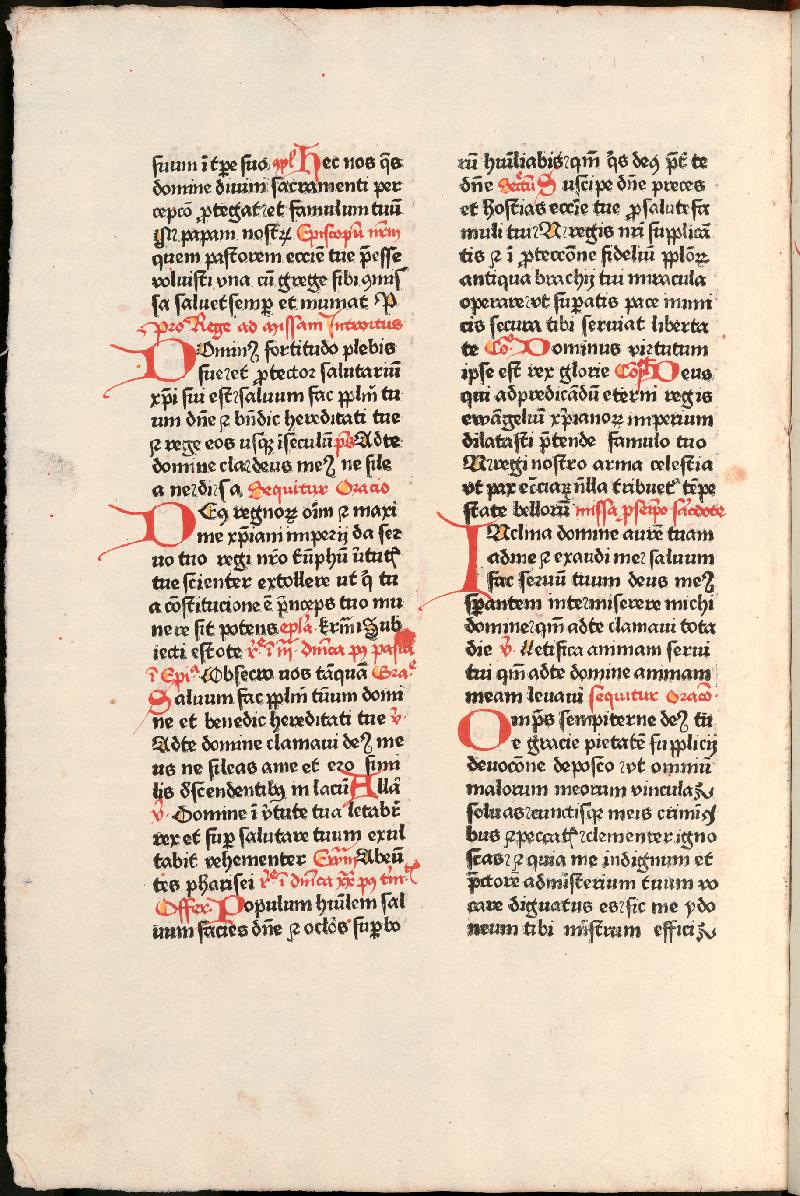 suum ī tꝑe suo. ꝯpl̄ Hec nos q̄s
domine diuini sacramenti per
cepcō ꝓtegat ⁊ et famulum tuū
N papam nostrꝝ Episcopū nr̄m
quem pastorem eccīe tue p̄esse
voluisti vna cū grege sibi ꝯmiſ
sa saluet semꝑ et muniat P
Pro Rege ad missam Introitus
Dominꝰ fortitudo plebis
sue ⁊ et ꝓtector salutariū
xp̄i sui est ⁊ saluum fac ppl̄m tu
um dn̄e ⁊ bn̄dic hereditati tue
⁊ rege eos usqꝫ ī sēculū ps̄ Ad te
domine cla⁊ deus meꝰ ne sile
a ne di sa Sequitur Oracio
Deꝰ regnoꝝ oīm ⁊ maxi
me xp̄iani imperij da ser
uo tuo regi nr̄o tūphū v̄tutꝭ
tue scienter extollere ut q̄ tu
a cōstitucione ē p̄nceps tuo mu
nere sit potens epl̄a kr̄mī Sub
iecti estote r̄e ī iij dn̄ica pꝰ pasca
ī Epīa Obsecro uos tāquā Gra͛
Saluum fac ppl̄m tuum domi
ne et benedic hereditati tue v̄
Ad te domine clamaui deꝰ me
us ne sileas a me et ero simi
lis d̄scendentibꝫ in lacū Allā
v̄ Domine ī v̄tute tua letabr̄
rex et suꝑ salutare tuum exul
tabit vehementer Ewm̄ Abeū
tes pharisei r̄e ī dn̄ica xx pꝰ tr̄in
Offer Populum hūilem sal
uum facies dn̄e ⁊ oclōs suꝑbo
rū hūiliabis ⁊ qm̄ q̄s deꝰ p̄t te
dn̄e Secrū Suscipe dn̄e preces
et hostias eccīe tue ꝓ salute fa
muli tui N regis nr̄i supplicā
tis ⁊ ī ꝓteccōne fidelium pplōꝝ
antiqua brachij tui miracula
operare ⁊ vt suꝑatis pace inimi
cis secura tibi seruiat liberta
te Co͛ Dominus virtutum
ipse est rex glorie Cōpl̄ Deus
qui ad predicādū eterni regis
ewāgeliū xp̄ianoꝝ imperium
dilatasti p̄tende famulo tuo
N regi nostro arma celestia
vt pax ecc̄iaꝝ n̄lla tribuet᷑ tēpe
state bellorū missa ꝑ seīpō sacerdote
INclina domine aurē tuam
ad me ⁊ exaudi me ⁊ saluum
fac seruū tuum deus meꝰ
sꝑantem in te miserere michi
domine qm̄ ad te clamaui tota
die v̄ Letifica animam serui
tui qm̄ ad te domine animam
meam leuaui sequitur Oracō
Omp̄s sempiterne deꝰ tu
e gracie pietatē supplicij
deuocōne deposco ⁊ vt omniū
malorum meorum vincula ⁊
soluas ⁊ cunctisqꝫ meis crimīꝭ
bus ⁊ peccatꝭ ⁊ clementer igno
scas ⁊ ⁊ quia me indignum et
p̄ctore ad mīsterium tuum vo
care dignatus es ⁊ sic me ydo
neum tibi mīstrum effici⁊